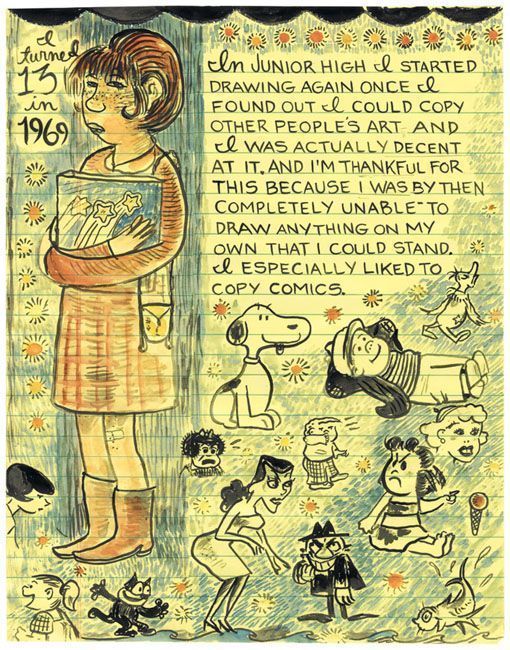 I
turned
13
in
1969
In JUNIOR HIGH I STARTED
DRAWING AGAIN ONCE I
FOUND OUT I COULD COPY
OTHER PEOPLE'S ART AND
I WAS ACTUALLY DECENT
AT IT. AND I'M THANKFUL FOR
THIS BECAUSE I WAS BY THEN
COMPLETELY UNABLE TO
DRAW ANYTHING ON MY
OWN THAT I COULD STAND.
I ESPECIALLY LIKED TO
COPY COMICS.